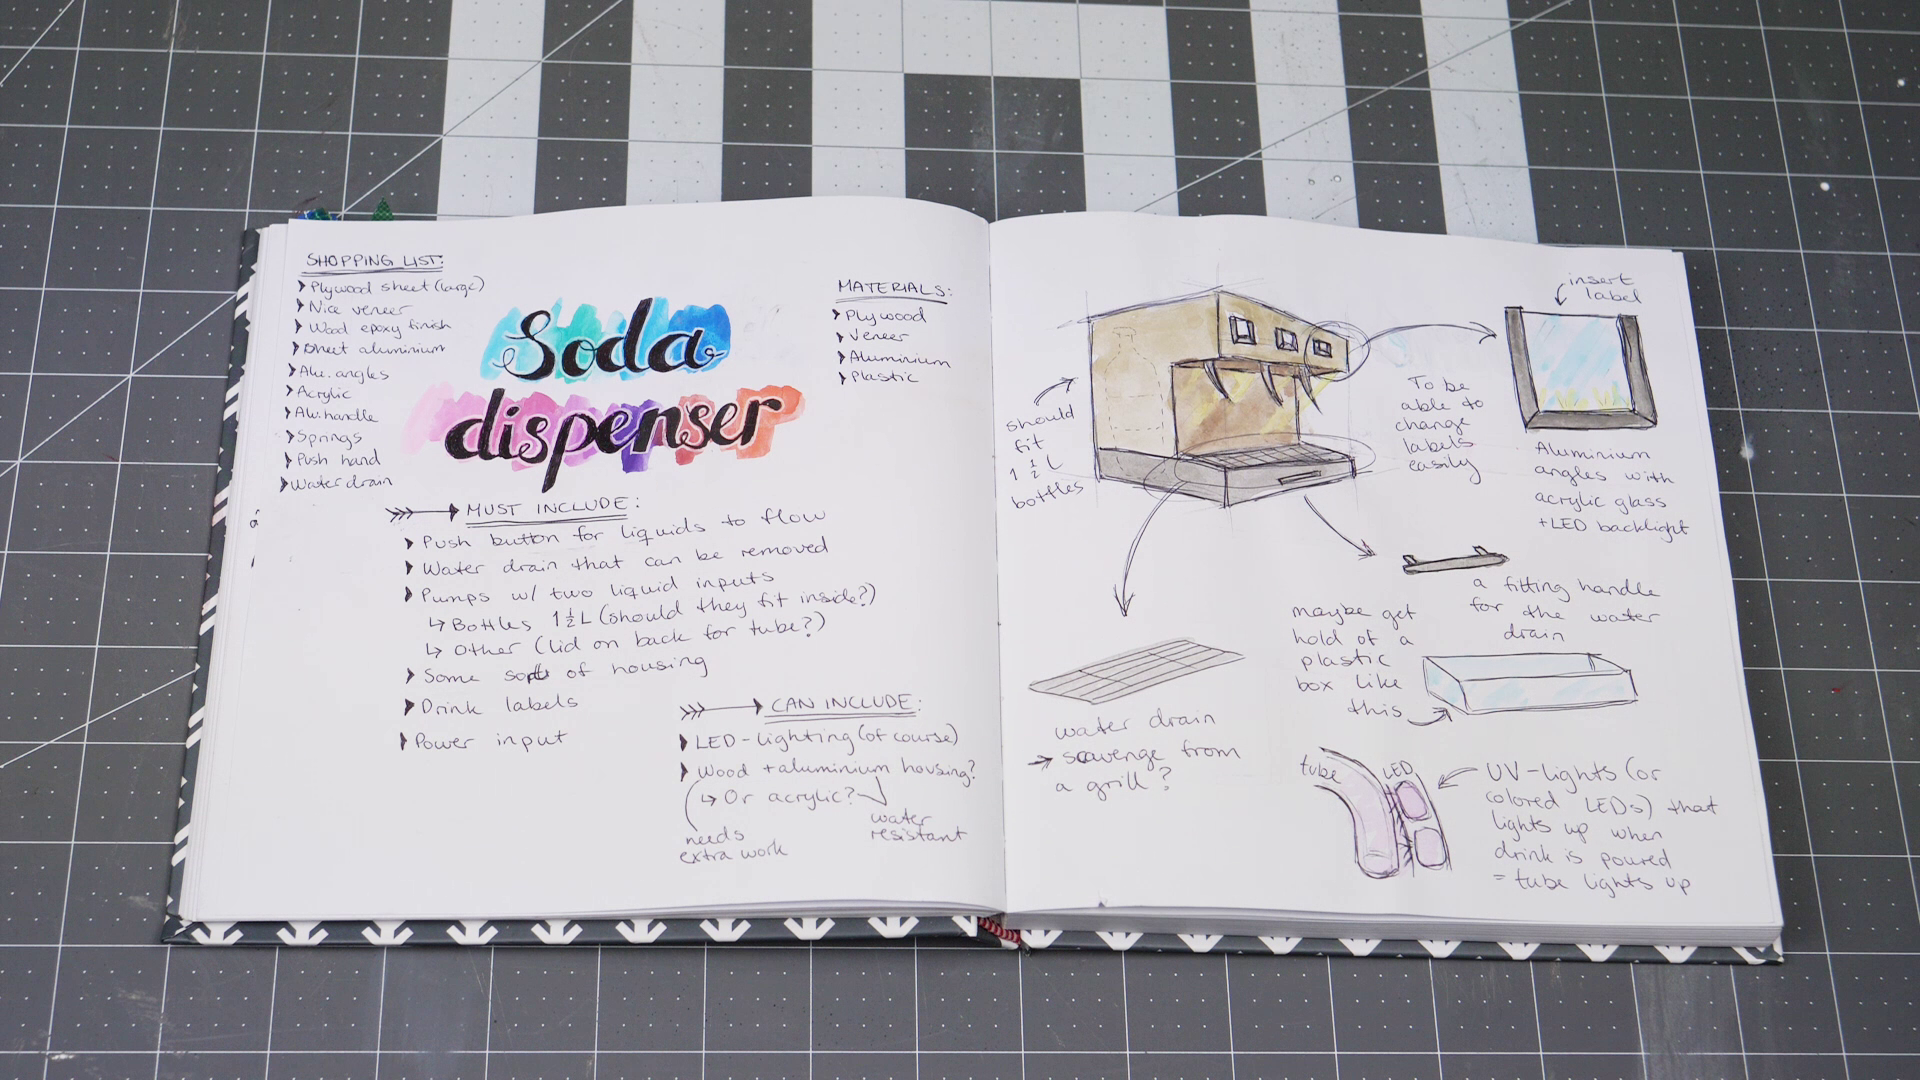 SHOPPING LIST:
Plywood sheet (large)
Nice veneer
Wood epoxy finish
Sheet aluminium
Alu. angles
Acrylic
Alu. handle
Springs
Push hand
Water drain
Soda
dispenser
MATERIALS:
Plywood
Veneer
Aluminium
Plastic
MUST INCLUDE:
Push button for liquids to flow
Water drain that can be removed
Pumps w/ two liquid inputs
↳ Bottles 1½ L (should they fit inside?)
↳ Other (lid on back for tube?)
Some sort of housing
Drink labels
Power input
CAN INCLUDE:
LED-lighting (of course)
Wood + aluminium housing?
↳ Or acrylic?
needs
extra work
water
resistant
should
fit
1 ½ L
bottles
insert
label
To be
able to
change
labels
easily
Aluminium
angles with
acrylic glass
+LED backlight
a fitting handle
for the water
drain
maybe get
hold of a
plastic
box like
this
water drain
→ scavenge from
a grill?
tube
LED
UV-lights (or
colored LEDs) that
lights up when
drink is poured
= tube lights up